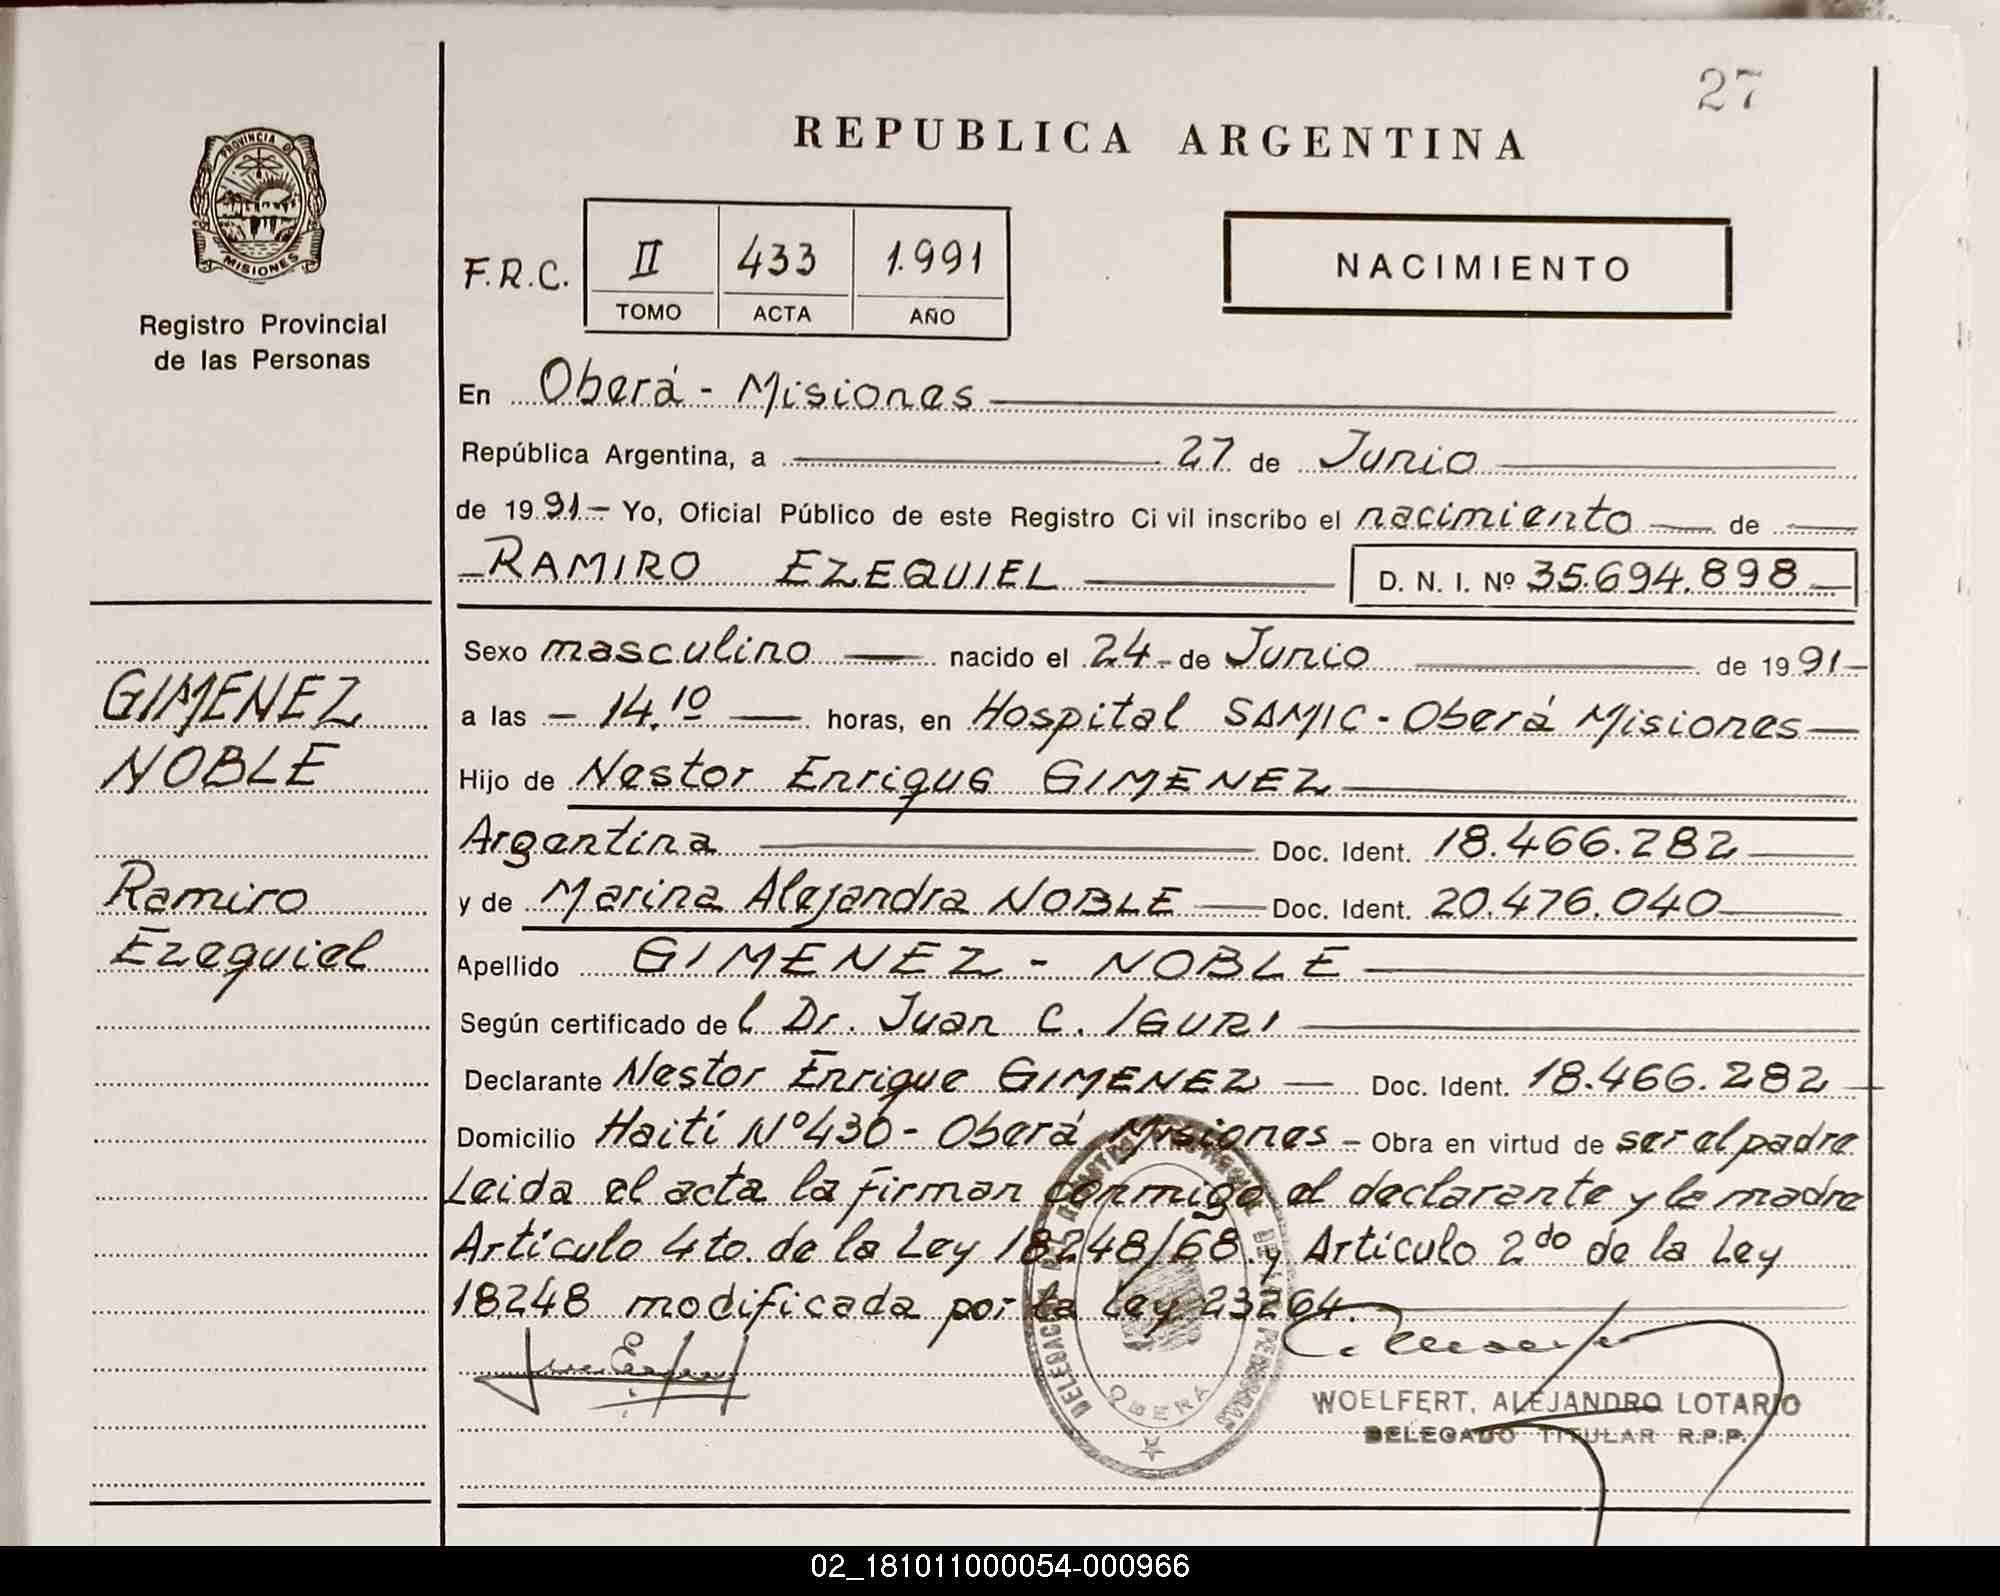 27
REPUBLICA ARGENTINA
PROVINCIA DE
MISIONES
Registro Provincial
de las Personas
F.R.C. II 433 1.991
TOMO ACTA AÑO
NACIMIENTO
En Oberá - Misiones
República Argentina, a 27 de Junio
de 1991- Yo, Oficial Público de este Registro Civil inscribo el nacimiento de
RAMIRO EZEQUIEL D. N. I. Nº 35.694.898
GIMENEZ
NOBLE
Ramiro
Ezequiel
Sexo masculino nacido el 24 - de Junio de 1991-
a las - 14.10 horas, en Hospital SAMIC - Oberá Misiones
Hijo de Nestor Enrique GIMENEZ
Argentina Doc. Ident. 18.466.282
y de Marina Alejandra NOBLE Doc. Ident. 20.476.040
Apellido GIMENEZ - NOBLE
Según certificado del Dr. Juan C. IGURI
Declarante Nestor Enrique GIMENEZ Doc. Ident. 18.466.282
Domicilio Haití Nº 430 - Oberá Misiones - Obra en virtud de ser el padre
Leida el acta la firman conmigo el declarante y la madre
Artículo 4to. de la Ley 18248/68 y Artículo 2do de la Ley
18248 modificada por la Ley 23264.
OBERA
WOELFERT, ALEJANDRO LOTARIO
DELEGADO TITULAR R.P.P.
02_181011000054-000966